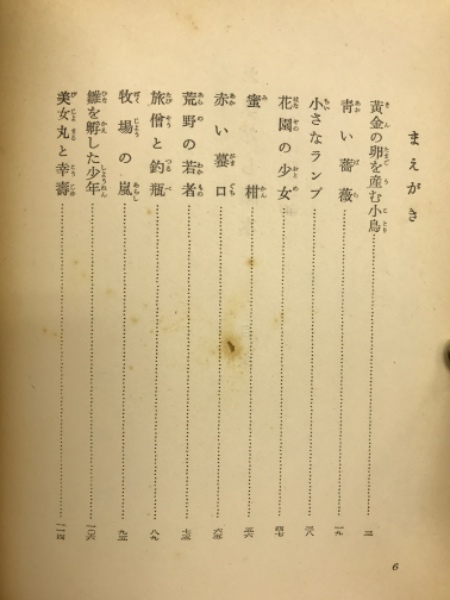 まえがき
黄金の卵を産む小鳥 三
青い薔薇 一九
小さなランプ 三八
花園の少女 四七
蜜柑 五六
赤い蟇口 六五
荒野の若者 七三
旅僧と釣瓶 八九
牧場の嵐 九五
雛を孵した少年 一〇六
美女丸と幸壽 一一四
6